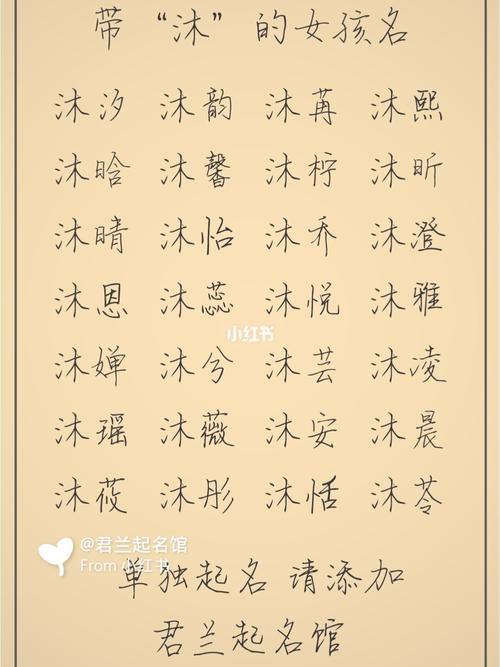 带“沐”的女孩名
沐汐 沐韵 沐苒 沐熙
沐晗 沐馨 沐柠 沐昕
沐晴 沐怡 沐乔 沐澄
沐恩 沐蕊 沐悦 沐雅
小红书
沐婵 沐兮 沐芸 沐凌
沐瑶 沐薇 沐安 沐晨
沐莜 沐彤 沐恬 沐苓
@君兰起名馆
From 小红书
单独起名 请添加
君兰起名馆